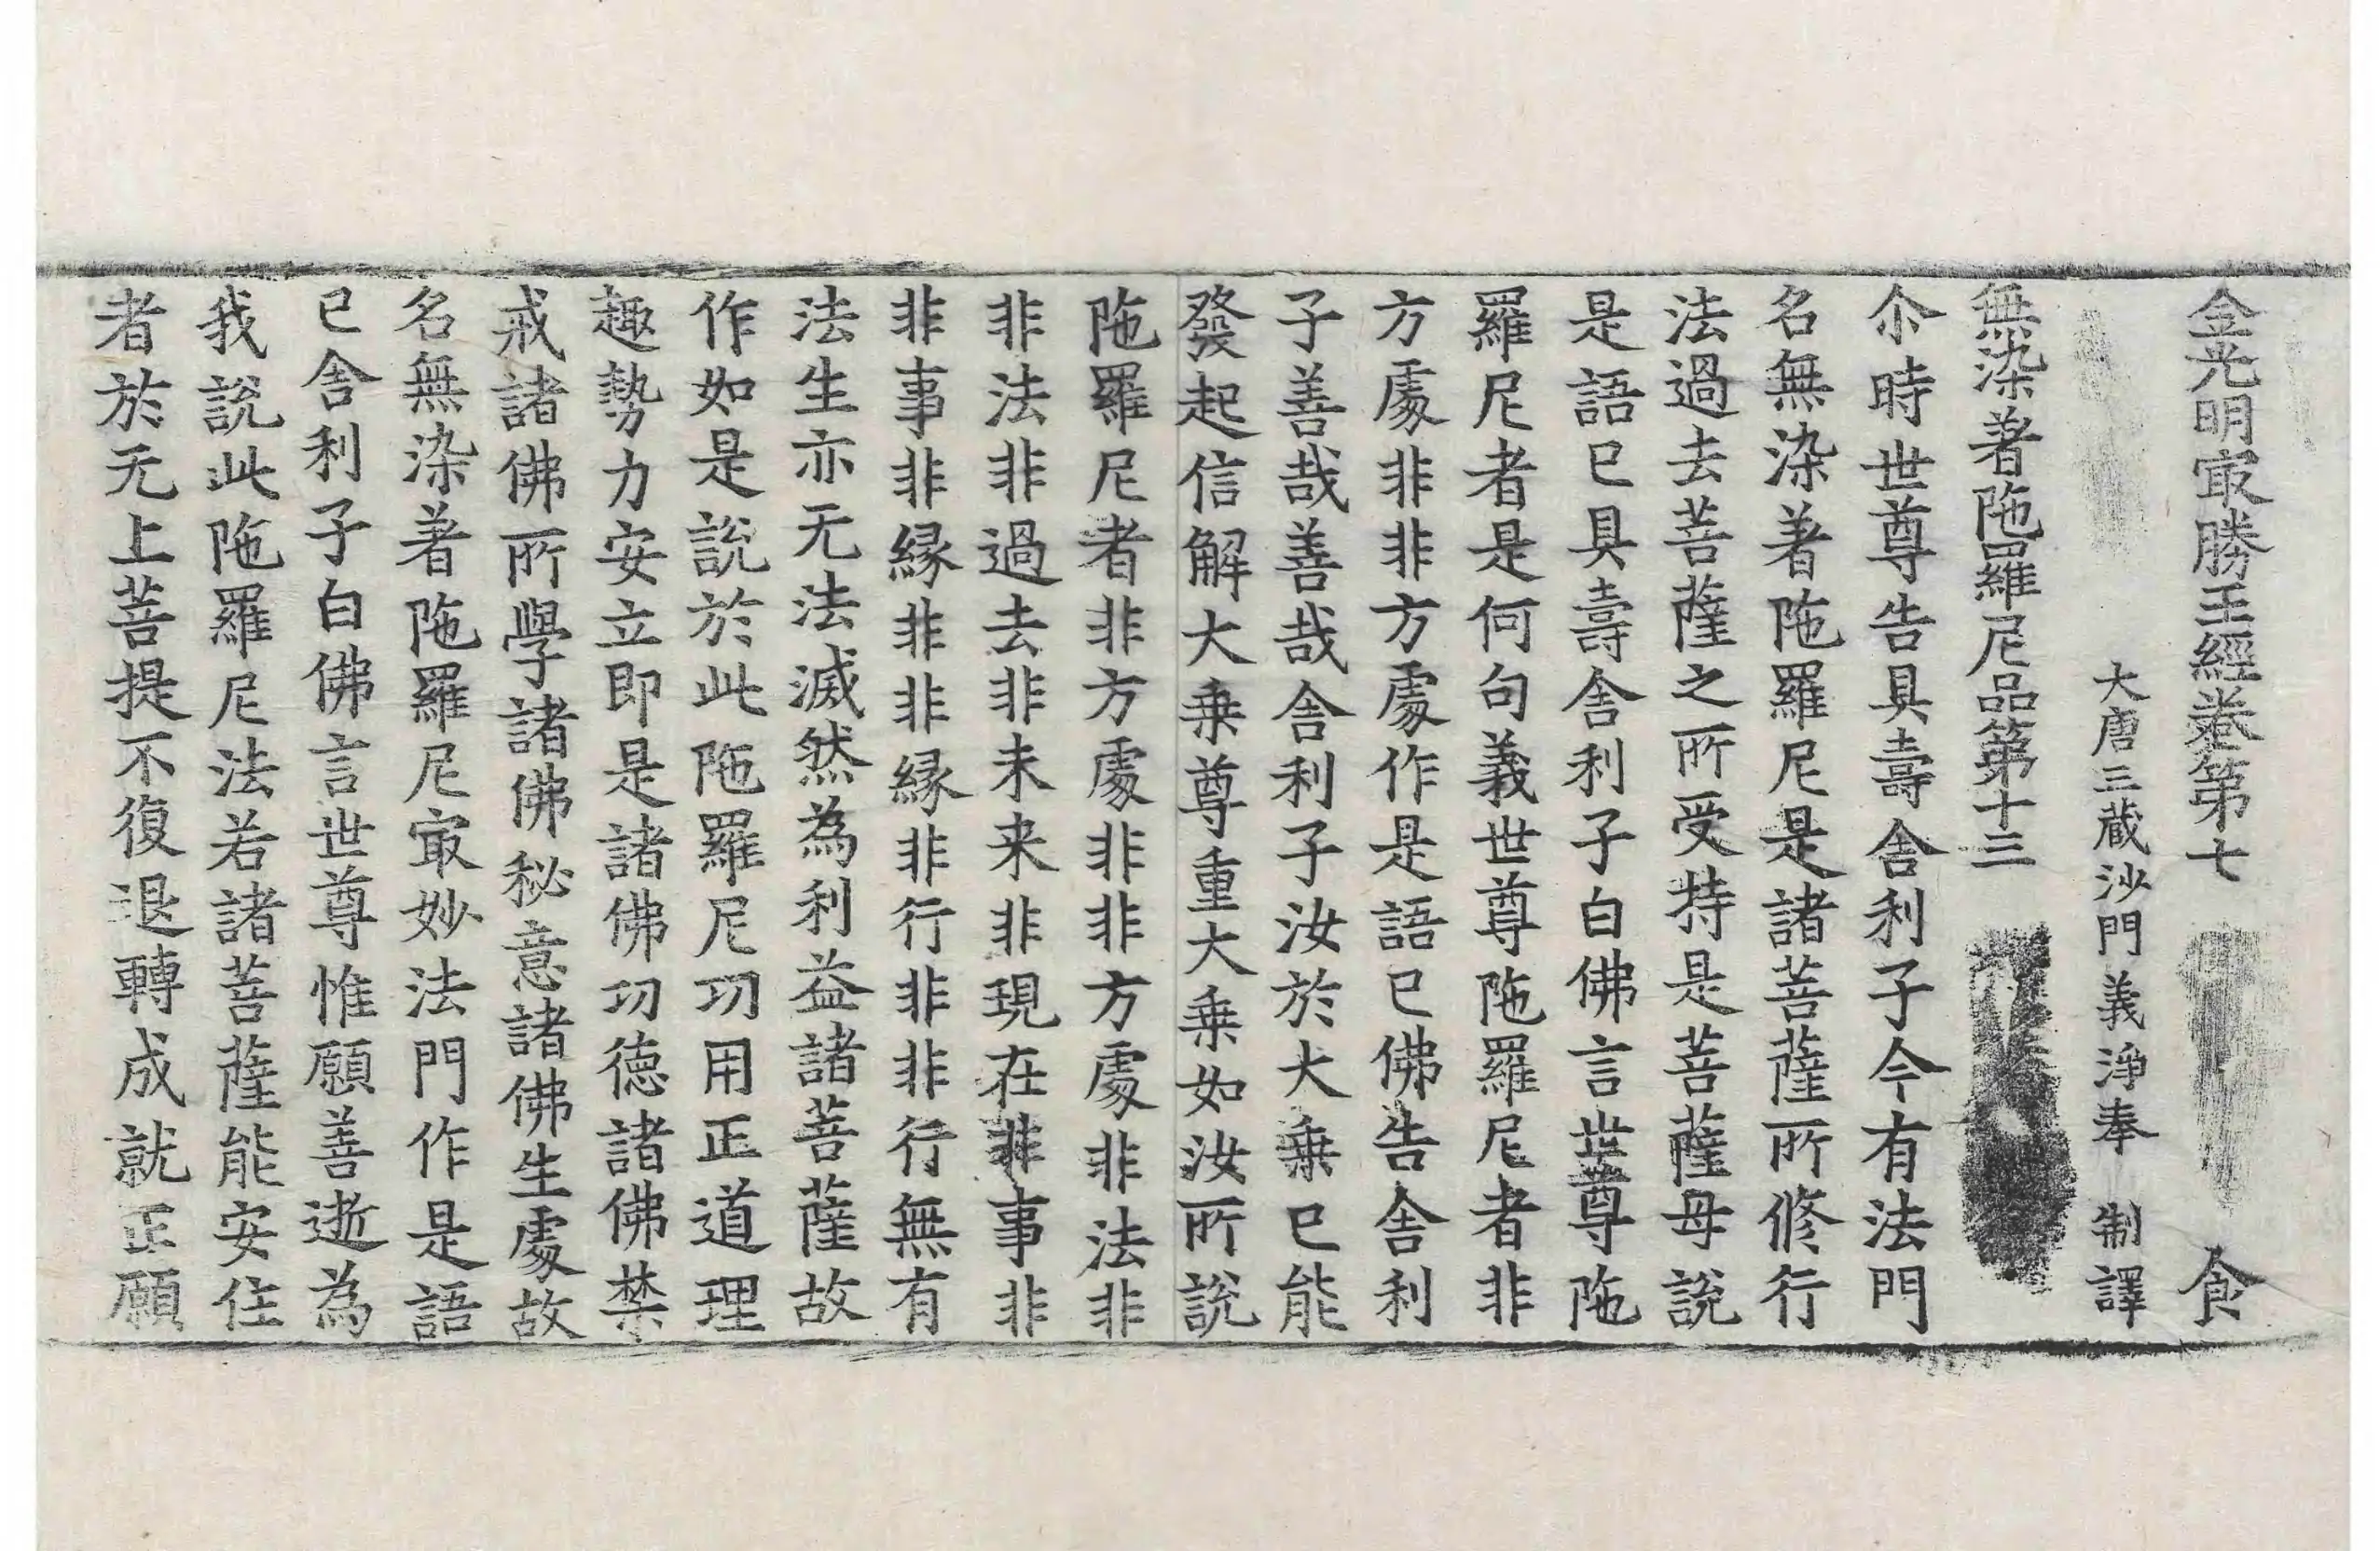 金光明㝡勝王經卷第七　食
大唐三藏沙門義淨奉　制譯
無染著陁羅尼品第十三
尒時世尊告具壽舍利子今有法門
名無染著陁羅尼是諸菩薩所修行
法過去菩薩之所受持是菩薩母說
是語已具壽舍利子白佛言世尊陁
羅尼者是何句義世尊陁羅尼者非
方處非非方處作是語已佛告舍利
子善哉善哉舍利子汝於大乘已能
發起信解大乘尊重大乘如汝所說
陁羅尼者非方處非非方處非法非
非法非過去非未来非現在非事非
非事非縁非非縁非行非非行無有
法生亦无法滅然為利益諸菩薩故
作如是說於此陁羅尼功用正道理
趣勢力安立即是諸佛功德諸佛禁
戒諸佛所學諸佛秘意諸佛生處故
名無染著陁羅尼㝡妙法門作是語
已舍利子白佛言世尊惟願善逝為
我說此陁羅尼法若諸菩薩能安住
者於无上菩提不復退轉成就正願